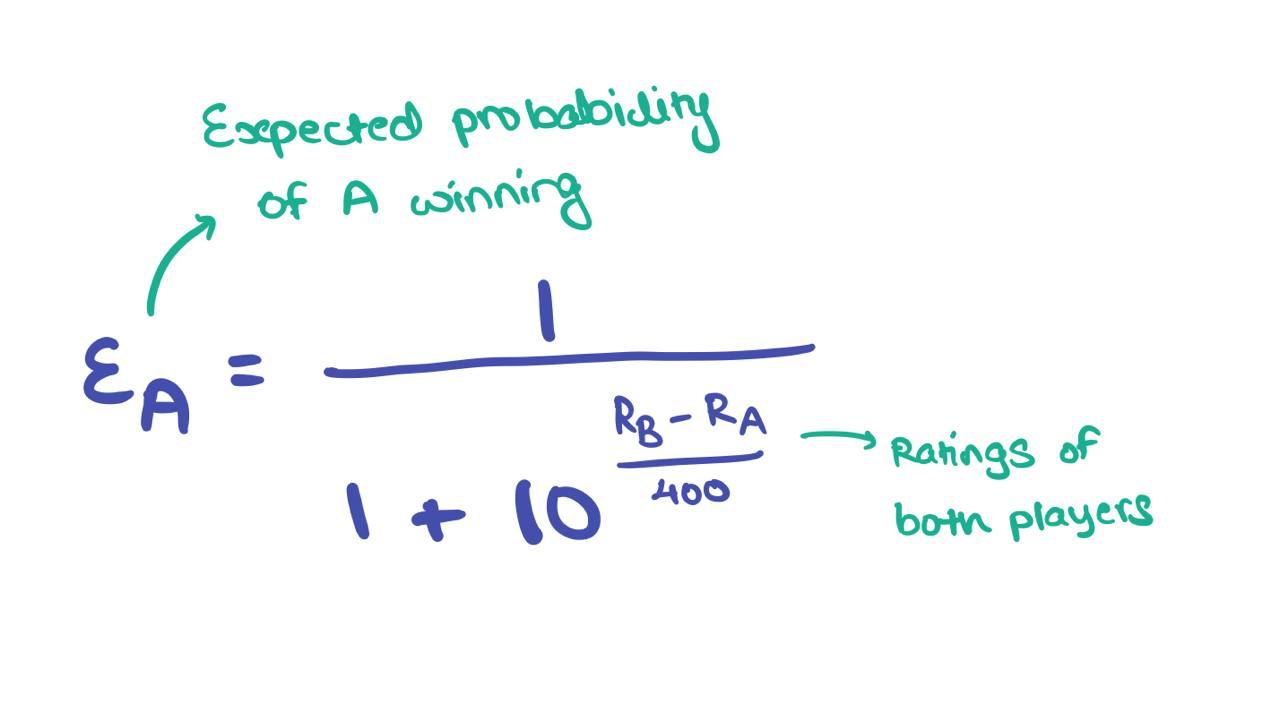 Expected probability
of A winning
1
ε_A =
R_B - R_A
400
1 + 10
Ratings of
both players